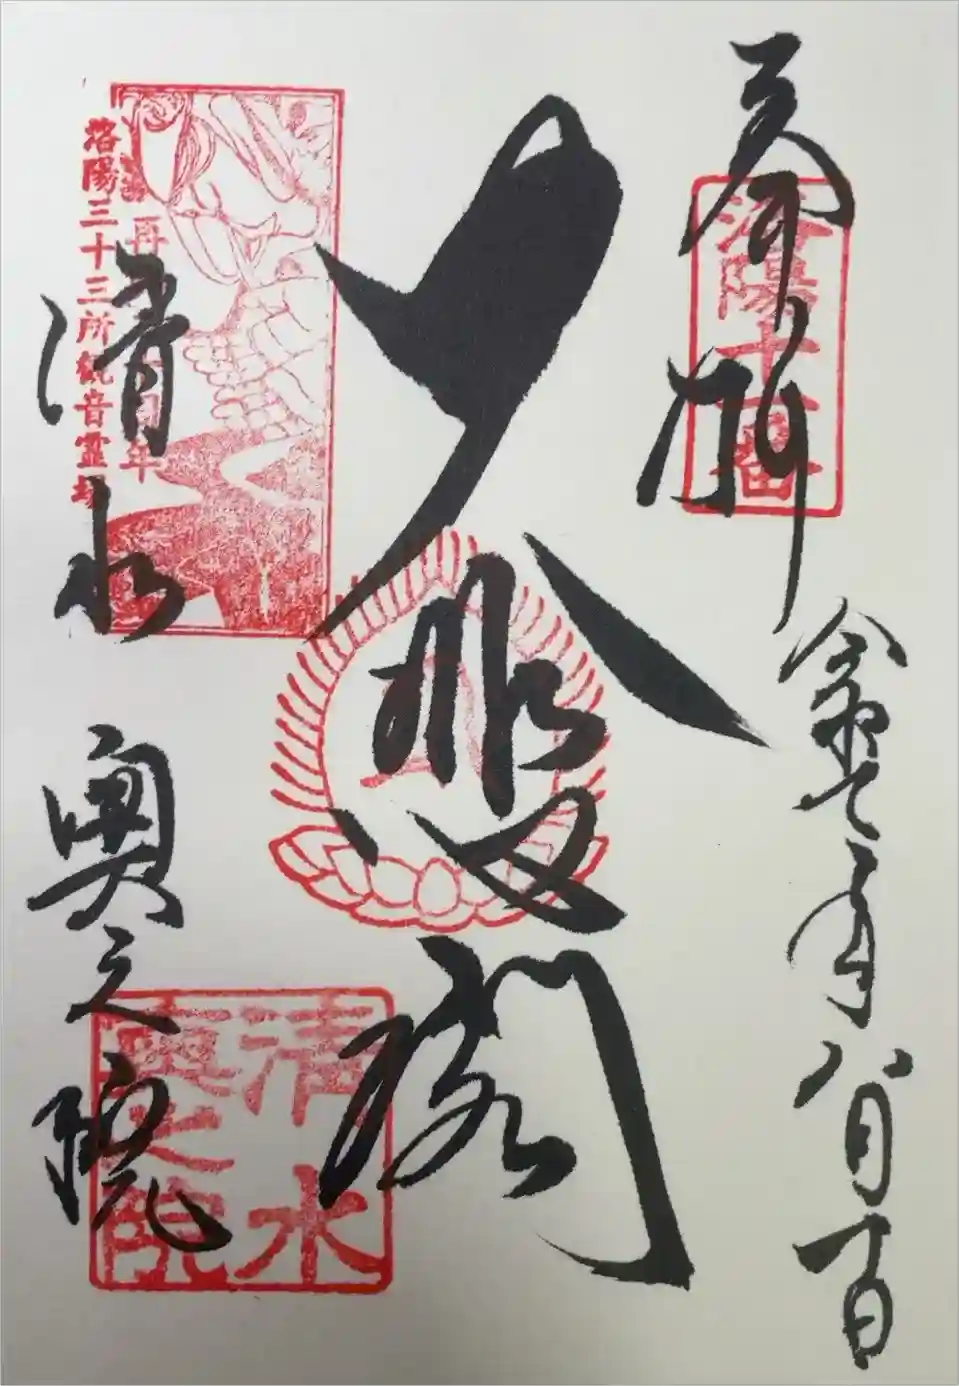 奉拝
洛陽十一番
令和元年八月十日
大悲閣
洛陽三十三所観音霊場
再
年
清水
奥之院
清水
奥之院